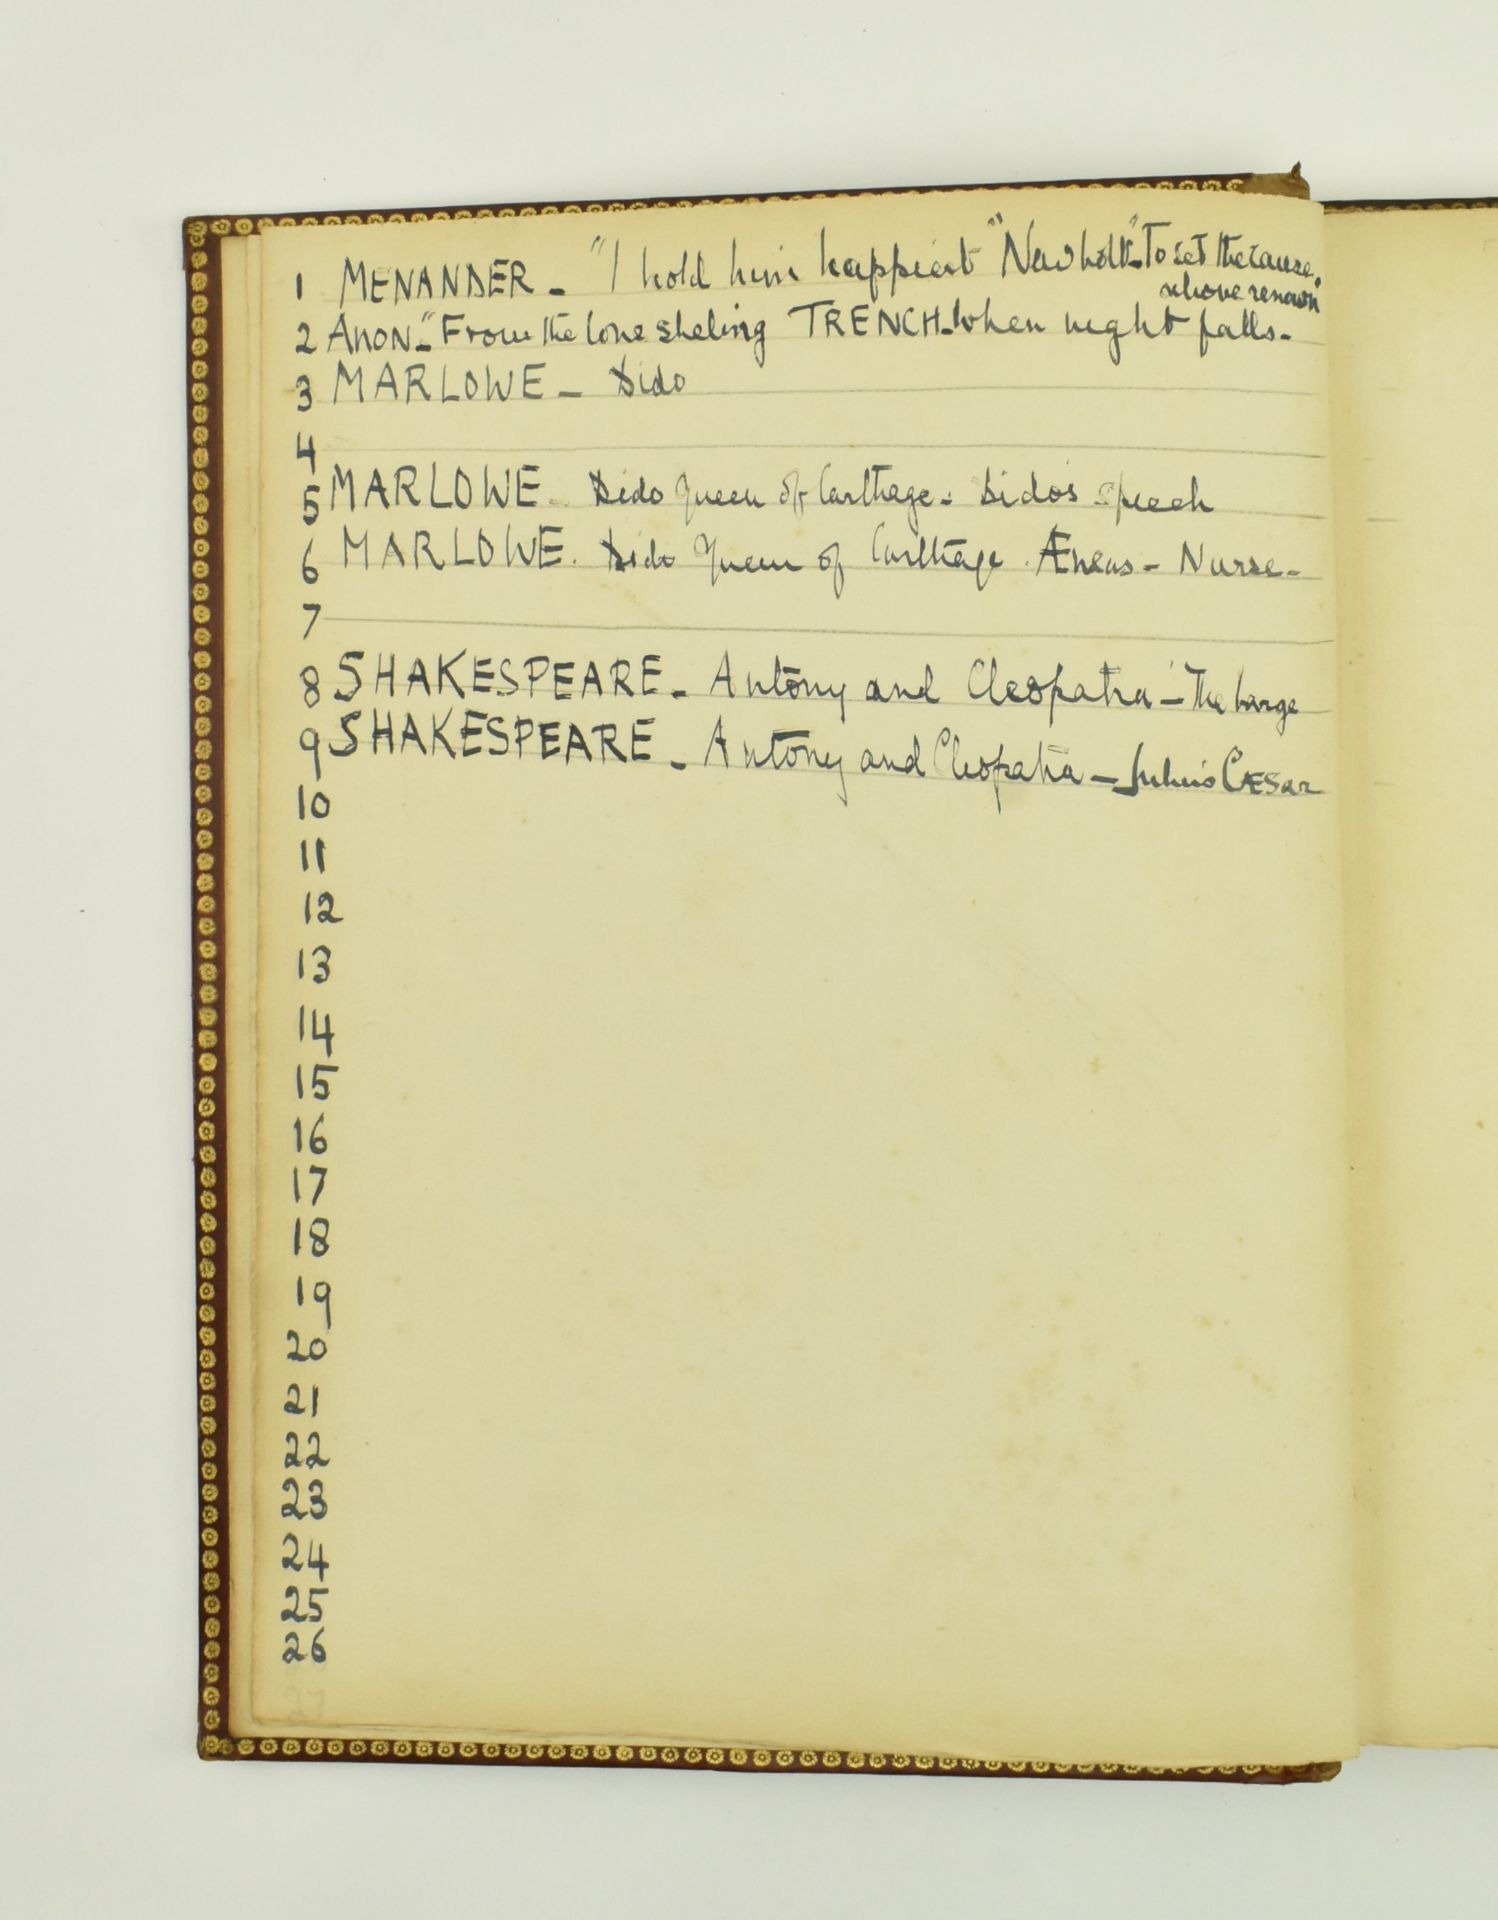 1 MENANDER - "I hold him happiest" Newbolt - "To set the cause
above renown"
2 ANON - "From the lone sheling TRENCH - When night falls -
3 MARLOWE - Dido
4
5 MARLOWE - Dido Queen of Carthage - Dido's speech
6 MARLOWE. Dido Queen of Carthage. Æneas - Nurse -
7
8 SHAKESPEARE - Antony and Cleopatra - The barge
9 SHAKESPEARE - Antony and Cleopatra - Julius CÆSar
10
11
12
13
14
15
16
17
18
19
20
21
22
23
24
25
26
27